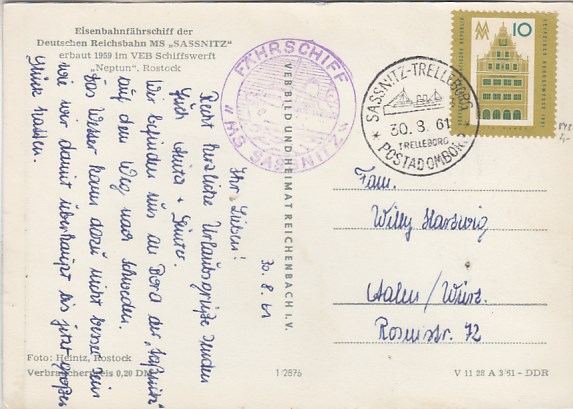 Eisenbahnfährschiff der
Deutschen Reichsbahn MS „SASSNITZ"
erbaut 1959 im VEB Schiffswerft
„Neptun", Rostock
FÄHRSCHIFF
"MS SASSNITZ"
SASSNITZ-TRELLEBORG
30.8.61
TRELLEBORG
POSTADOMBORD
10
30.8.61
Ihr Lieben!
Recht herzliche Urlaubsgrüße senden
Euch Anita + Günter.
Wir befinden uns an Bord der „Saßnitz"
auf dem Weg nach Schweden.
Das Wetter kann dazu nicht besser sein
wie wir damit überhaupt bis jetzt großes
Glück hatten.
VEB BILD UND HEIMAT REICHENBACH I. V.
Fam.
Willy Hartwig
Aalen/Württ.
Rosenstr. 72
Foto: Heintz, Rostock
Verbraucherpreis 0,20 DM
1/2876
V 11 28 A 3/61 - DDR